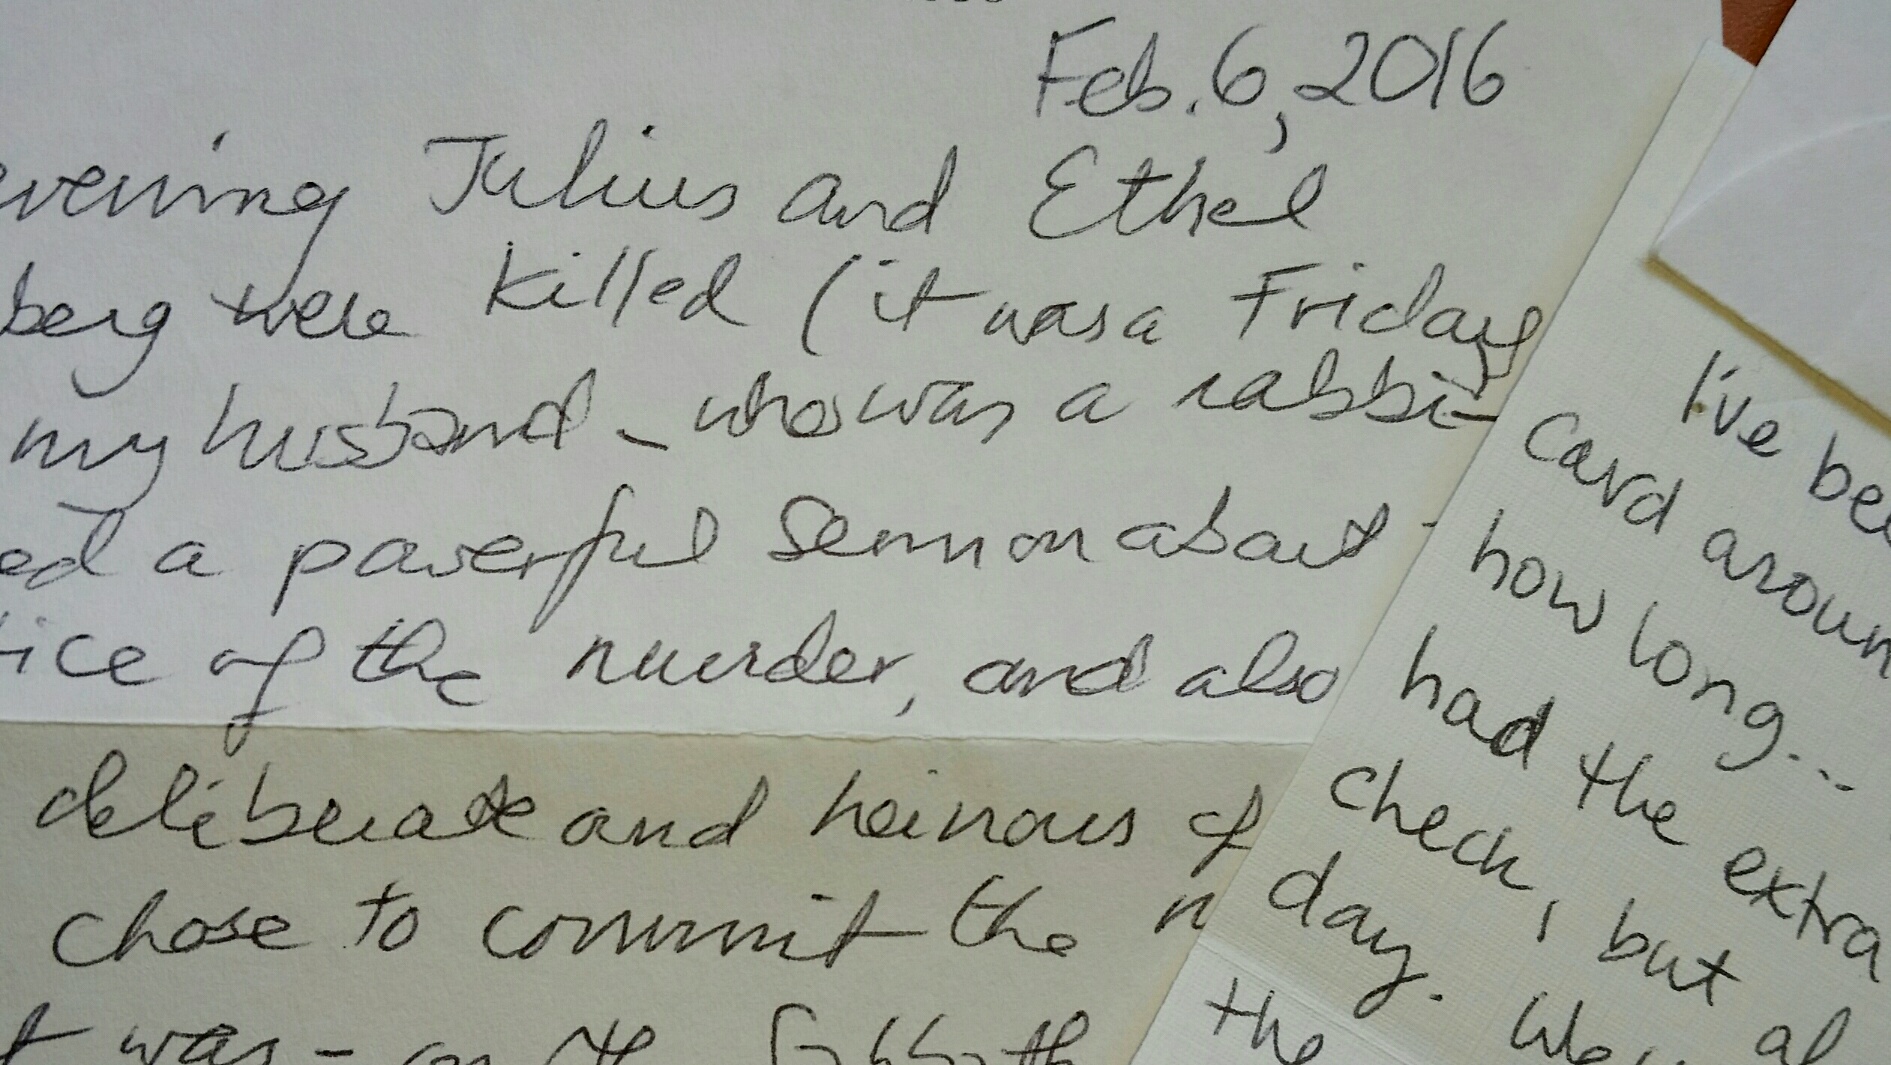 Feb. 6, 2016
evening Julius and Ethel
berg were killed (it was a Friday
my husband - who was a rabbi -
ed a powerful sermon about
ice of the murder, and also
deliberate and heinous of
chose to commit the
was - on the Sabbath
I've bee
card aroun
how long...
had the extra
check, but al
day.
the